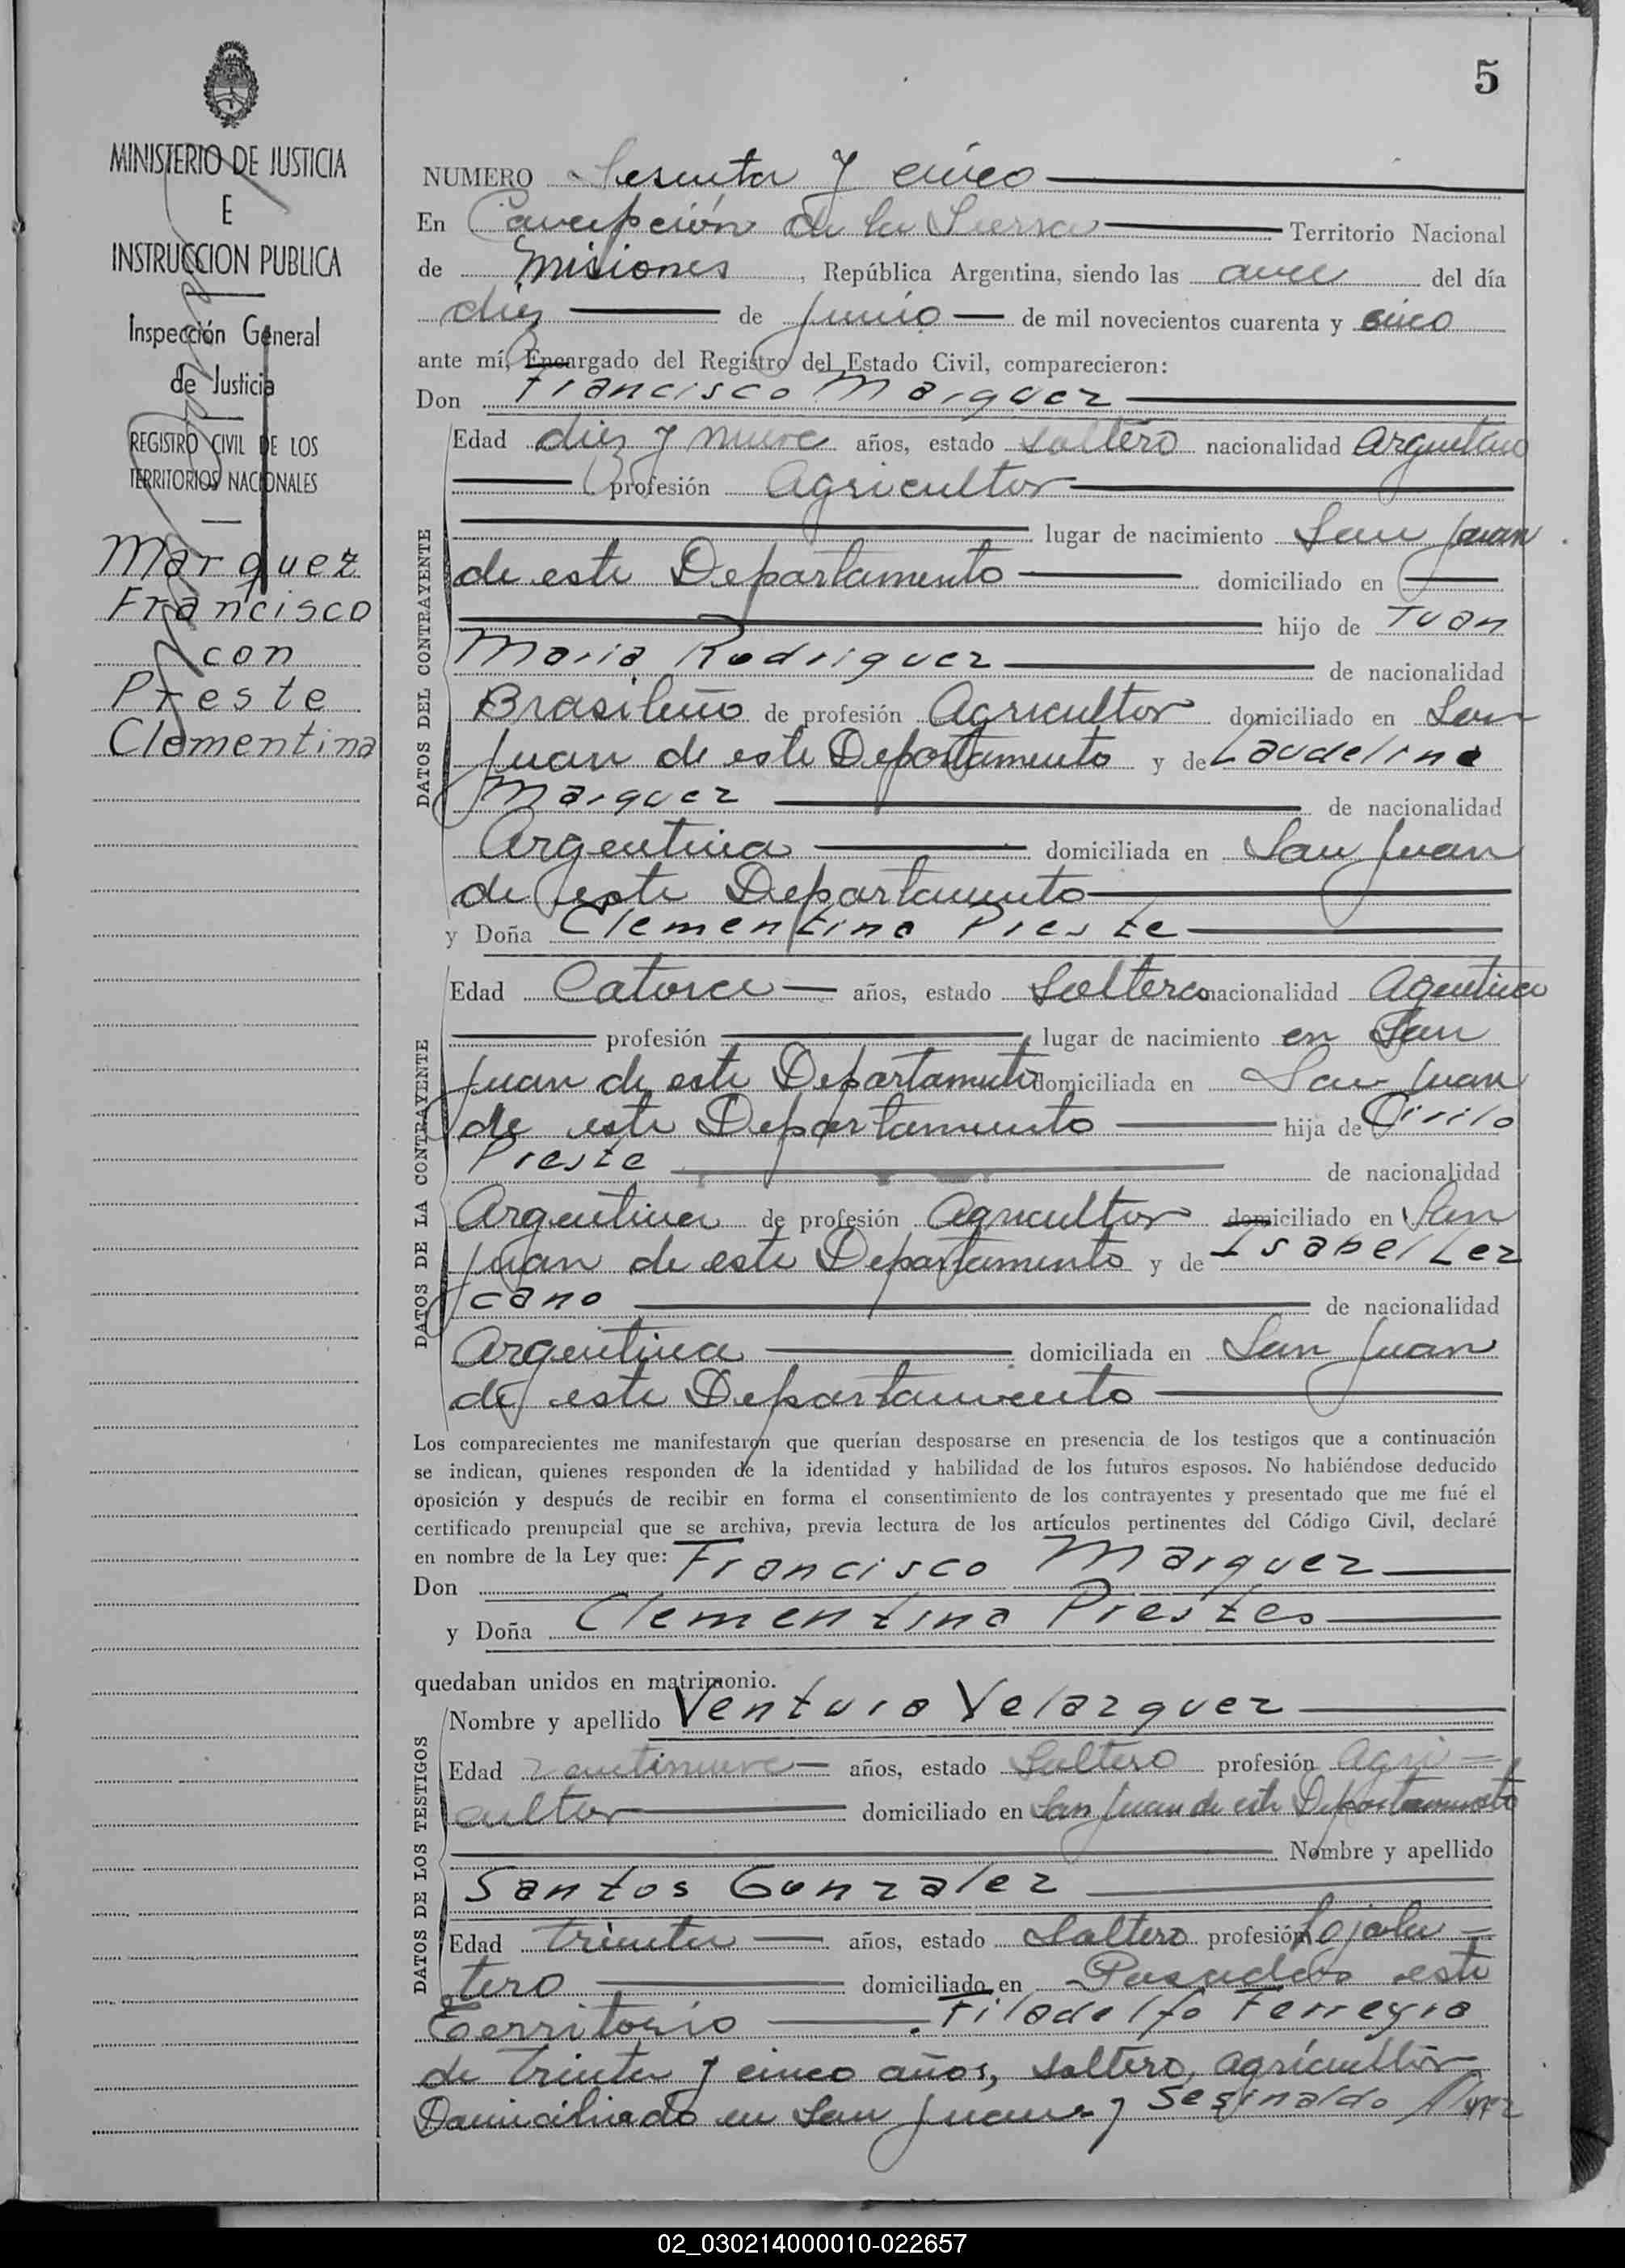 5
MINISTERIO DE JUSTICIA
E
INSTRUCCION PUBLICA
Inspección General
de Justicia
REGISTRO CIVIL DE LOS
TERRITORIOS NACIONALES
Marquez
Francisco
con
Preste
Clementina
NUMERO Sesenta y cinco
En Concepción de la Sierra Territorio Nacional
de Misiones, República Argentina, siendo las once del día
diez de junio de mil novecientos cuarenta y cinco
ante mí, Encargado del Registro del Estado Civil, comparecieron:
Don Francisco Marquez
DATOS DEL CONTRAYENTE
Edad diez y nueve años, estado soltero nacionalidad Argentino
profesión Agricultor
lugar de nacimiento San Juan
de este Departamento domiciliado en
hijo de Juan
Maria Rodriguez de nacionalidad
Brasileño de profesión Agricultor domiciliado en San
Juan de este Departamento y de Laudelina
Marquez de nacionalidad
Argentina domiciliada en San Juan
de este Departamento
y Doña Clementina Preste
DATOS DE LA CONTRAYENTE
Edad Catorce años, estado Soltera nacionalidad Agentina
profesión lugar de nacimiento en San
Juan de este Departamento domiciliada en San Juan
de este Departamento hija de Cirilo
Preste de nacionalidad
Argentina de profesión Agricultor domiciliado en San
Juan de este Departamento y de Isabel Lez
cano de nacionalidad
Argentina domiciliada en San Juan
de este Departamento
Los comparecientes me manifestaron que querían desposarse en presencia de los testigos que a continuación
se indican, quienes responden de la identidad y habilidad de los futuros esposos. No habiéndose deducido
oposición y después de recibir en forma el consentimiento de los contrayentes y presentado que me fué el
certificado prenupcial que se archiva, previa lectura de los artículos pertinentes del Código Civil, declaré
en nombre de la Ley que:
Don Francisco Marquez
y Doña Clementina Prestes
quedaban unidos en matrimonio.
DATOS DE LOS TESTIGOS
Nombre y apellido Ventura Velazquez
Edad años, estado Soltero profesión Agri=
cultor domiciliado en San Juan de este Departamento
Nombre y apellido
Santos Gonzalez
Edad treinta años, estado Soltero profesión Hojala=
tero domiciliado en Posadas este
Territorio . Filadelfo Ferreyra
de treinta y cinco años, soltero, agricultor
Domiciliado en San Juan y Seginaldo
02_030214000010-022657